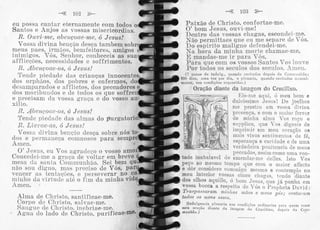 102
eu possa cantar eternamente com todos os
Santos e Anjos as vossas misericórdias.
R. Ouvi-me, abençoae-me, ó Jesus!
Vossa divina benção desça tambem sobre
meus paes, irmãos, bemfeitores, amigos e
inimigos. Vós, Senhor, conheceis as suas
afflicções, necessidades e soffrimentos.
R. Abençoae-os, ó Jesus!
Tende piedade das crianças innocentes,
dos orphãos, dos pobres e enfermos, dos
desamparados e afflictos, dos peccadores e
dos moribundos e de todos os que soffrem
e precisam da vossa graça e do vosso au-
xilio.
R. Abençoae-os, ó Jesus!
Tende piedade das almas do purgatorio
R. Livrae-as, ó Jesus!
Vossa divina benção desça sobre nós to-
dos e permaneça comnosco para sempre.
Amen.
O' Jesus, eu Vos agradeço o vosso amor.
Concedei-me a graça de voltar em breve á
mesa da santa Communhão. Sei bem que
não sou digno, mas preciso de Vós, para
vencer as tentações, e perseverar no ca-
minho da virtude até o fim da minha vida.
Amen.
Alma de Christo, santificae-me.
Corpo de Christo, salvae-me.
Sangue de Christo, inebriae-me.
Agua do lado de Christo, purificae-me.
103
Paixão de Christo, confortae-me.
O' bom Jesus, ouvi-me!
Dentro das vossas chagas, escondei-me.
Não permittaes que eu me separe de Vós.
Do espirito maligno defendei-me.
Na hora da minha morte chamae-me.
E mandae-me ir para Vós,
Para que com os vossos Santos Vos louve
por todos os seculos dos seculos. Amen.
Oração diante da imagem do Crucifixo.
Eis-me aqui, ó meu bom e
dulcissimo Jesus! De joelhos
me prostro em vossa divina
presença, e com o maior fervor
de minha alma Vos rogo e
supplico, que Vos digneis de
imprimir em meu coração os
mais vivos sentimentos de fé,
esperança e caridade e de uma
verdadeira penitencia de meus
peccados, assim como uma von-
tade inabalavel de emendar-me delles. Isto Vos
peço ao mesmo tempo que com o maior affecto
e dôr considero comsigo mesmo e contemplo no
meu interior vossas cinco chagas, tendo diante
dos olhos aquillo, ó bom Jesus, que já punha em
vossa bocca a respeito de Vós o Propheta David:
Traspassaram minhas mãos e meus pés; contaram
todos os meus ossos.